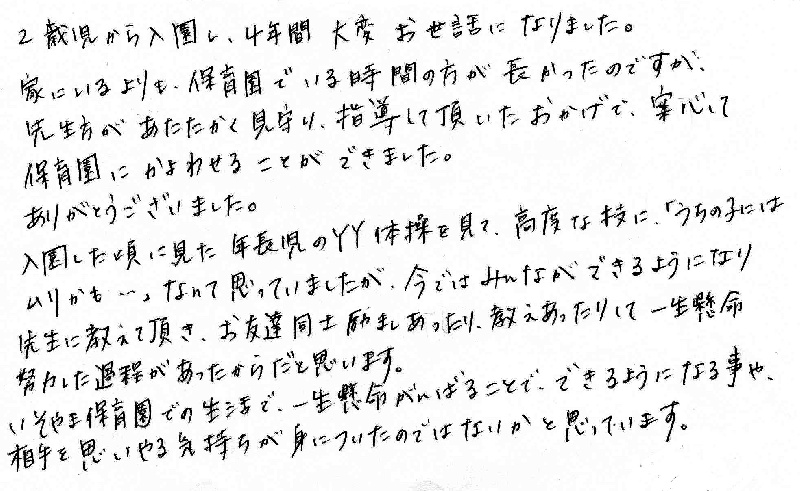 2歳児から入園し、4年間 大変 お世話に なりました。
家にいるよりも、保育園でいる時間の方が 長かったのですが、
先生方が あたたかく見守り、指導して頂いたおかげで、安心して
保育園に かよわせる ことが できました。
ありがとうございました。
入園した頃に見た 年長児のYY体操を見て、高度な技に、「うちの子には
ムリかも…」なんて思っていましたが、今では みんなができるようになり
先生に教えて頂き、お友達同士励ましあったり、教えあったりして 一生懸命
努力した過程があったからだと思います。
いそやま保育園での生活で、一生懸命がんばることで、できるようになる事や、
相手を思いやる気持ちが 身についたのではないかと思っています。